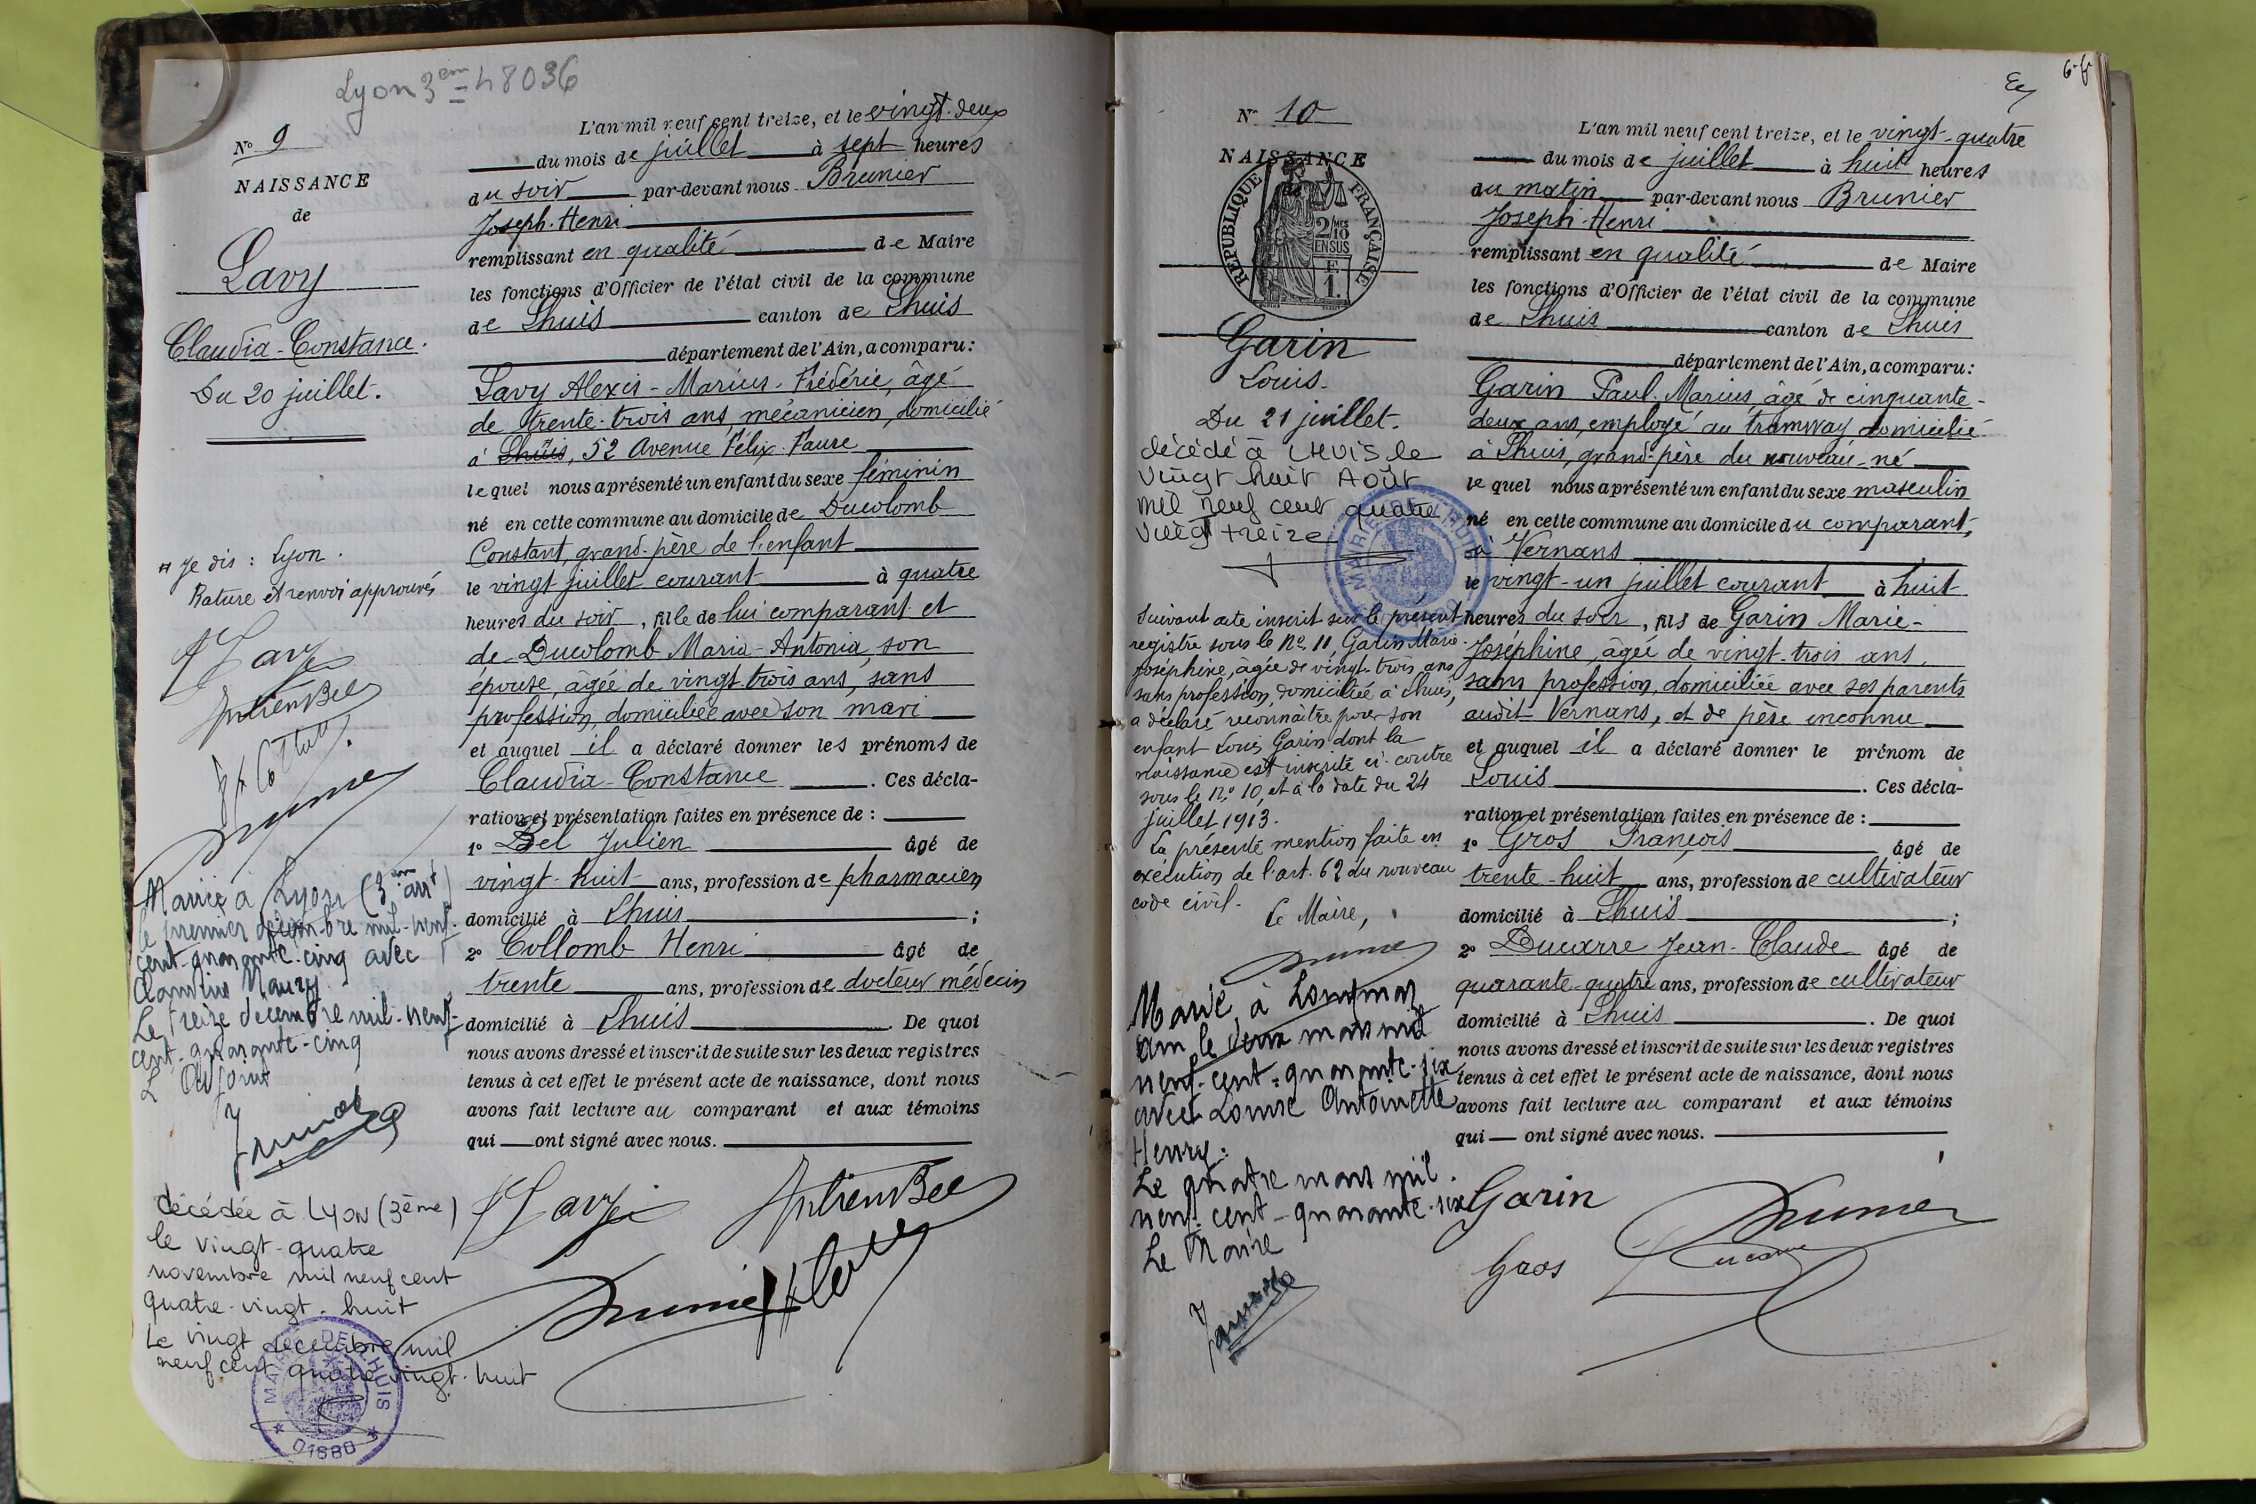 Lyon 3em = 48036
No 9
NAISSANCE
de
Lavy
Claudia-Constance.
Du 20 juillet.
¤ Je dis : Lyon.
Rature et renvoi approuvés
Julien Bel
Mariée à Lyon (3em arrt)
le premier décembre mil-neuf-
cent-quarante-cinq avec
Claudius Maury
Le treize décembre mil-neuf-
cent-quarante-cinq
décédée à LYON (3ème)
le vingt-quatre
novembre mil neuf cent
quatre-vingt-huit
Le vingt décembre mil
neuf cent quatre vingt-huit
MAIRIE DE LHUIS
01680
L'an mil neuf cent treize, et le vingt-deux
du mois de juillet à sept heures
du soir par-devant nous Brunier
Joseph-Henri
remplissant en qualité de Maire
les fonctions d'Officier de l'état civil de la commune
de Lhuis canton de Lhuis
département de l'Ain, a comparu :
Lavy Alexis-Marius-Frédéric, âgé
de trente-trois ans, mécanicien, domicilié
à Lhuis, 52 Avenue Félix-Faure
lequel nous a présenté un enfant du sexe féminin
né en cette commune au domicile de Ducolomb
Constant, grand-père de l'enfant
le vingt juillet courant à quatre
heures du soir, fille de lui comparant et
de Ducolomb Maria-Antonia, son
épouse, âgée de vingt-trois ans, sans
profession, domiciliée avec son mari
et auquel il a déclaré donner les prénoms de
Claudia-Constance. Ces décla-
ration et présentation faites en présence de :
1º Bel Julien âgé de
vingt-huit ans, profession de pharmacien
domicilié à Lhuis ;
2º Collomb Henri âgé de
trente ans, profession de docteur médecin
domicilié à Lhuis. De quoi
nous avons dressé et inscrit de suite sur les deux registres
tenus à cet effet le présent acte de naissance, dont nous
avons fait lecture au comparant et aux témoins
qui ont signé avec nous.
Lavy Julien Bel
Brunier
6-b
No 10
NAISSANCE
de
RÉPUBLIQUE FRANÇAISE
2/10 MES
EN SUS
F
1.
Garin
Louis.
Du 21 juillet.
décédé à LHUIS le
vingt huit Août
mil neuf cent quatre
vingt treize
Suivant acte inscrit sur le présent
registre sous le No 11, Garin Marie-
Joséphine, âgée de vingt-trois ans,
sans profession, domiciliée à Lhuis,
a déclaré reconnaître pour son
enfant Louis Garin dont la
naissance est inscrite ci-contre
sous le No 10, et à la date du 24
juillet 1913.
La présente mention faite en
exécution de l'art. 62 du nouveau
code civil.
Le Maire,
Brunier
Marié à
Ain le deux mars mil
neuf-cent-quarante-six
avec Louise Antoinette
Henry.
Le quatre mars mil
neuf-cent-quarante-six
Le Maire
L'an mil neuf cent treize, et le vingt-quatre
du mois de juillet à huit heures
du matin par-devant nous Brunier
Joseph-Henri
remplissant en qualité de Maire
les fonctions d'Officier de l'état civil de la commune
de Lhuis canton de Lhuis
département de l'Ain, a comparu :
Garin Paul-Marius, âgé de cinquante-
deux ans, employé au tramway domicilié
à Lhuis, grand-père du nouveau-né
lequel nous a présenté un enfant du sexe masculin
né en cette commune au domicile du comparant,
à Vernans
le vingt-un juillet courant à huit
heures du soir, fils de Garin Marie-
Joséphine, âgée de vingt-trois ans,
sans profession, domiciliée avec ses parents
audit Vernans, et de père inconnu
et auquel il a déclaré donner le prénom de
Louis. Ces décla-
ration et présentation faites en présence de :
1º Gros François âgé de
trente-huit ans, profession de cultivateur
domicilié à Lhuis ;
2º Ducarre Jean-Claude âgé de
quarante-quatre ans, profession de cultivateur
domicilié à Lhuis. De quoi
nous avons dressé et inscrit de suite sur les deux registres
tenus à cet effet le présent acte de naissance, dont nous
avons fait lecture au comparant et aux témoins
qui ont signé avec nous.
Garin Brunier
Gros Ducarre